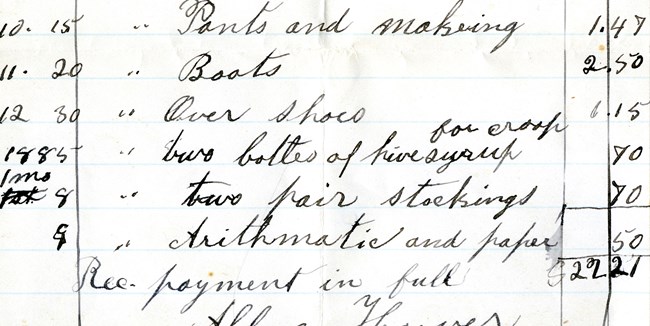 10. 15 " Pants and makeing 1.47
11. 20 " Boots 2.50
12 30 " Over shoes 1.15
for croop
1885 " two bottes of hive syrup 70
1 mo
8 " two pair stockings 70
9 " Arithmatic and paper 50
Rec. payment in full $22.21